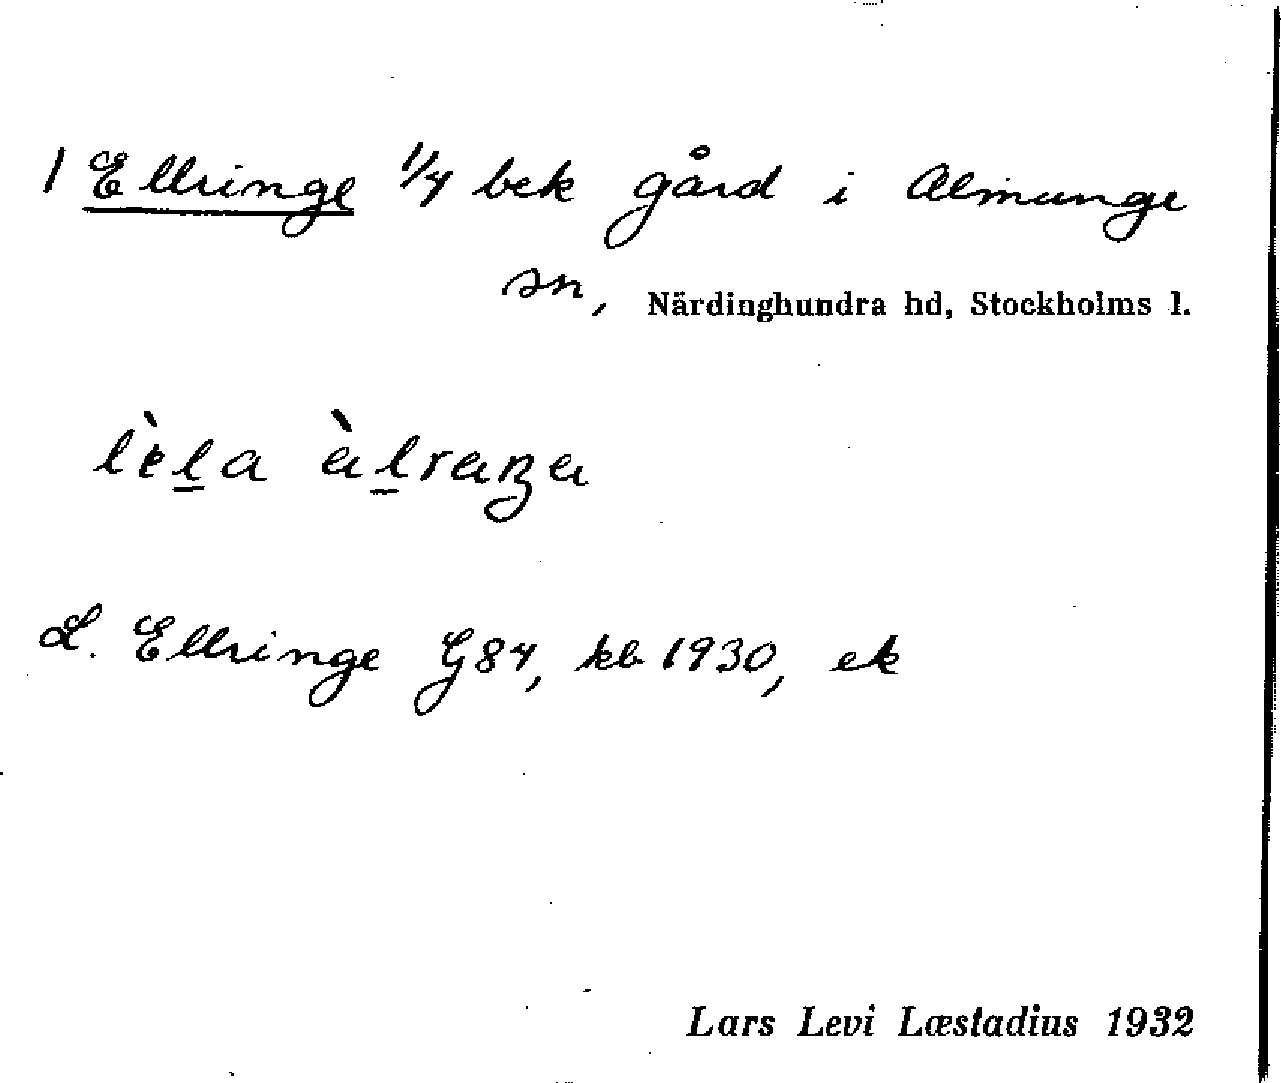 1 Ellringe 1/4 bek gård i Almunge
sn, Närdinghundra hd, Stockholms l.
L. Ellringe G84, kb 1930, ek
Lars Levi Læstadius 1932